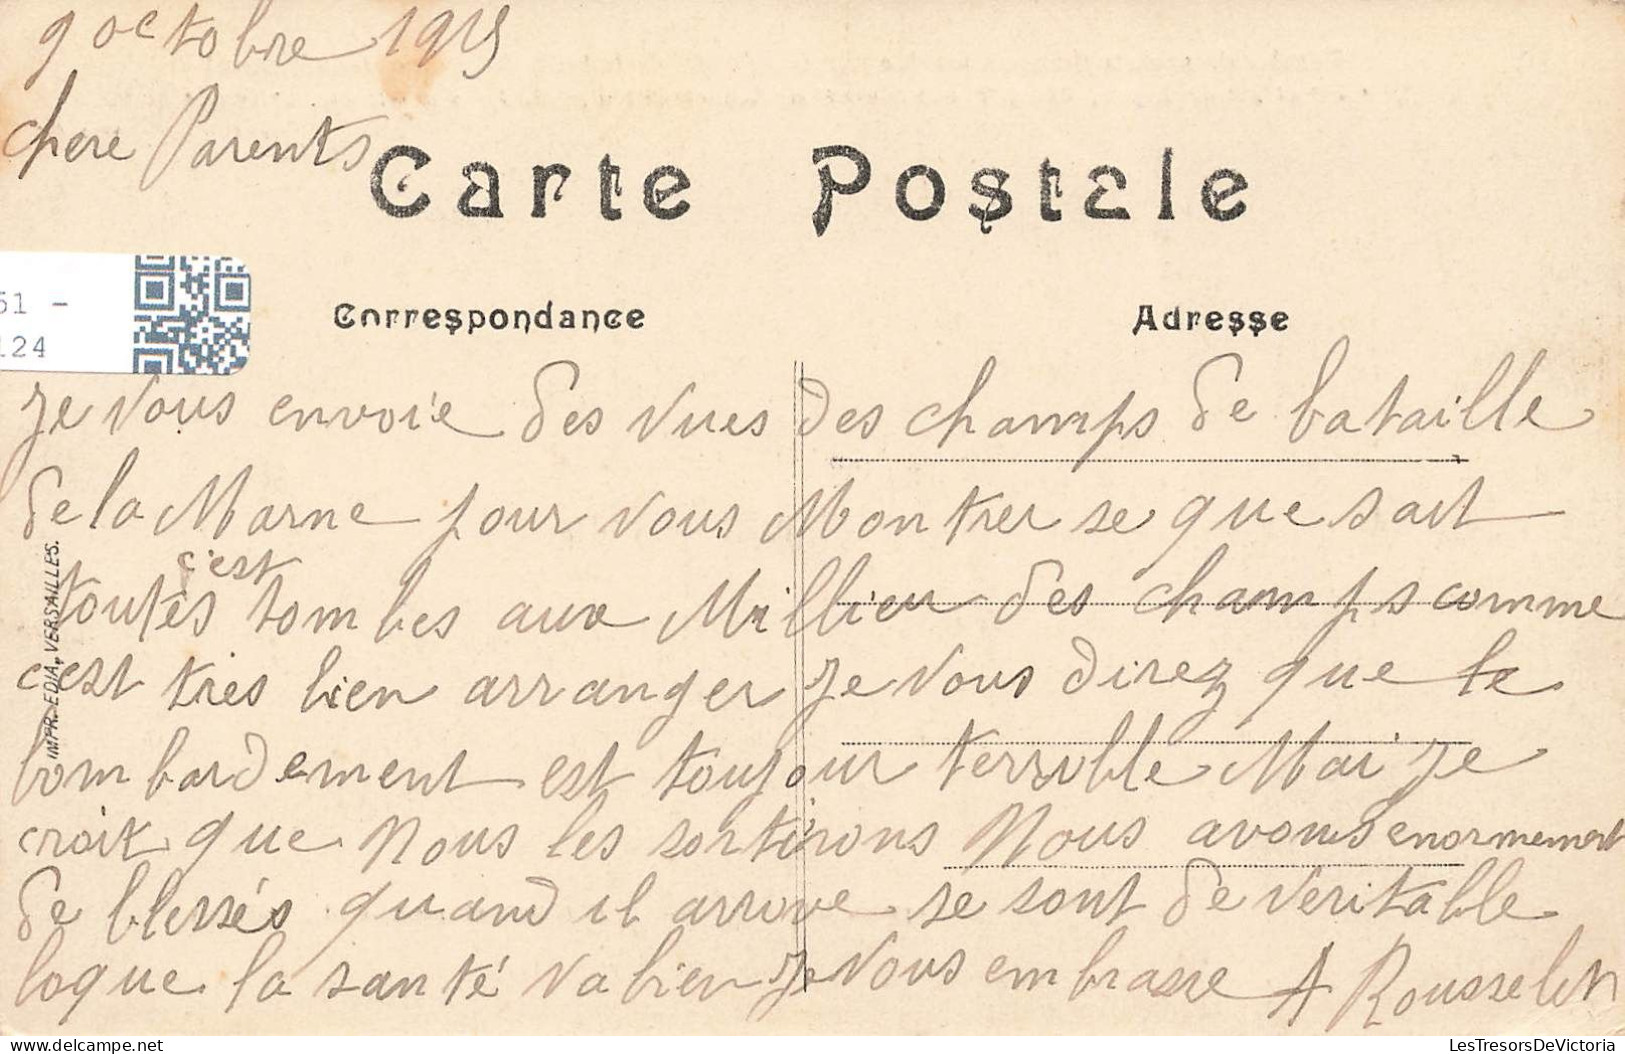 9 octobre 1915
chere Parents
Carte Postale
51 -
124
Correspondance
Adresse
je vous envoie des vues des champs de bataille
de la Marne pour vous Montrer se que sait
c'est
toutes tombes aux Millieu des champs comme
c'est tres bien arranger je vous direz que le
bombardement est toujour terrible Mai je
croix que Nous les sortirons Nous avons enormement
de blessés quand il arrive se sont de veritable
loque la santé va bien je vous embrasse A Rousselet
IMPR. EDIA, VERSAILLES.
LesTresorsDeVictoria
delcampe.net